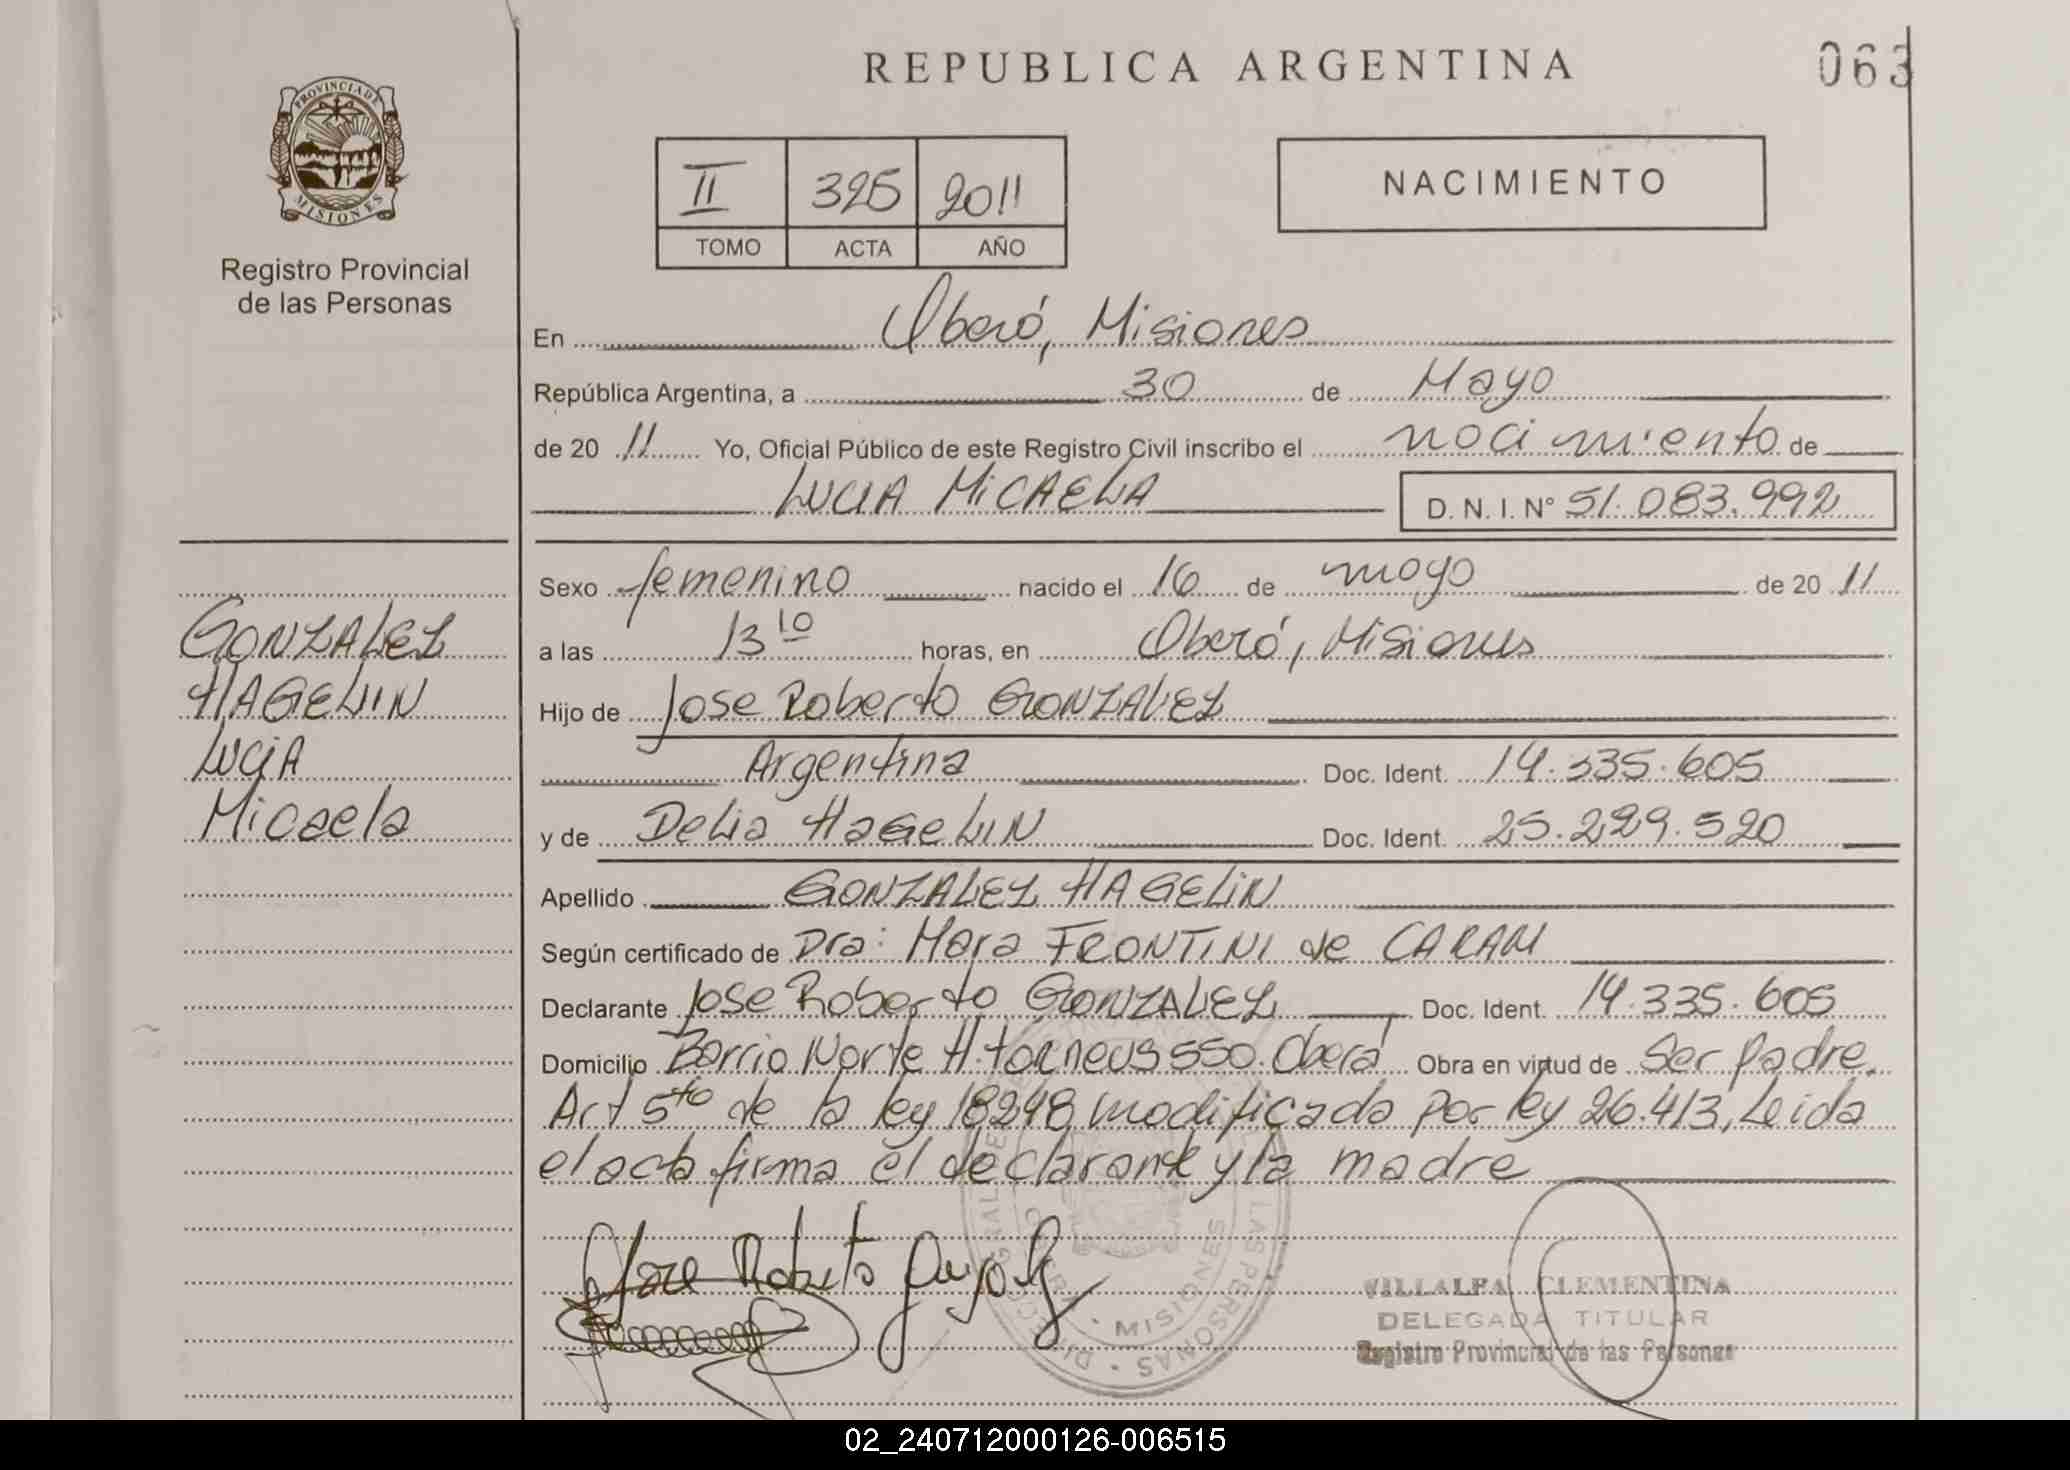 REPUBLICA ARGENTINA
063
PROVINCIA DE
MISIONES
Registro Provincial
de las Personas
II 325 2011
TOMO ACTA AÑO
NACIMIENTO
En Oberá, Misiones
República Argentina, a 30 de Mayo
de 20 11 Yo, Oficial Público de este Registro Civil inscribo el nacimiento de
LUCIA MiCAELA D. N. I. N° 51.083.992
Sexo femenino nacido el 16 de mayo de 20 11
a las 13 10 horas, en Oberá, Misiones
Hijo de Jose Roberto GONZALEZ
Argentina Doc. Ident. 14.335.605
y de Delia HAGELIN Doc. Ident. 25.229.520
Apellido GONZALEZ HAGELIN
Según certificado de Dra: Mara FRONTINI de CARAM
Declarante Jose Roberto GONZALEZ Doc. Ident. 14.335.605
Domicilio Barrio Norte H. torneus 550. Oberá Obra en virtud de Ser padre.
Art 5to de la ley 18248 modificada por ley 26.413, Leida
el acta firma el declarante y la madre
GONZALEZ
HAGELIN
LUCIA
Micaela
Jose Roberto
MISIONES
LAS PERSONAS
VILLALBA CLEMENTINA
DELEGADA TITULAR
Registro Provincial de las Personas
02_240712000126-006515